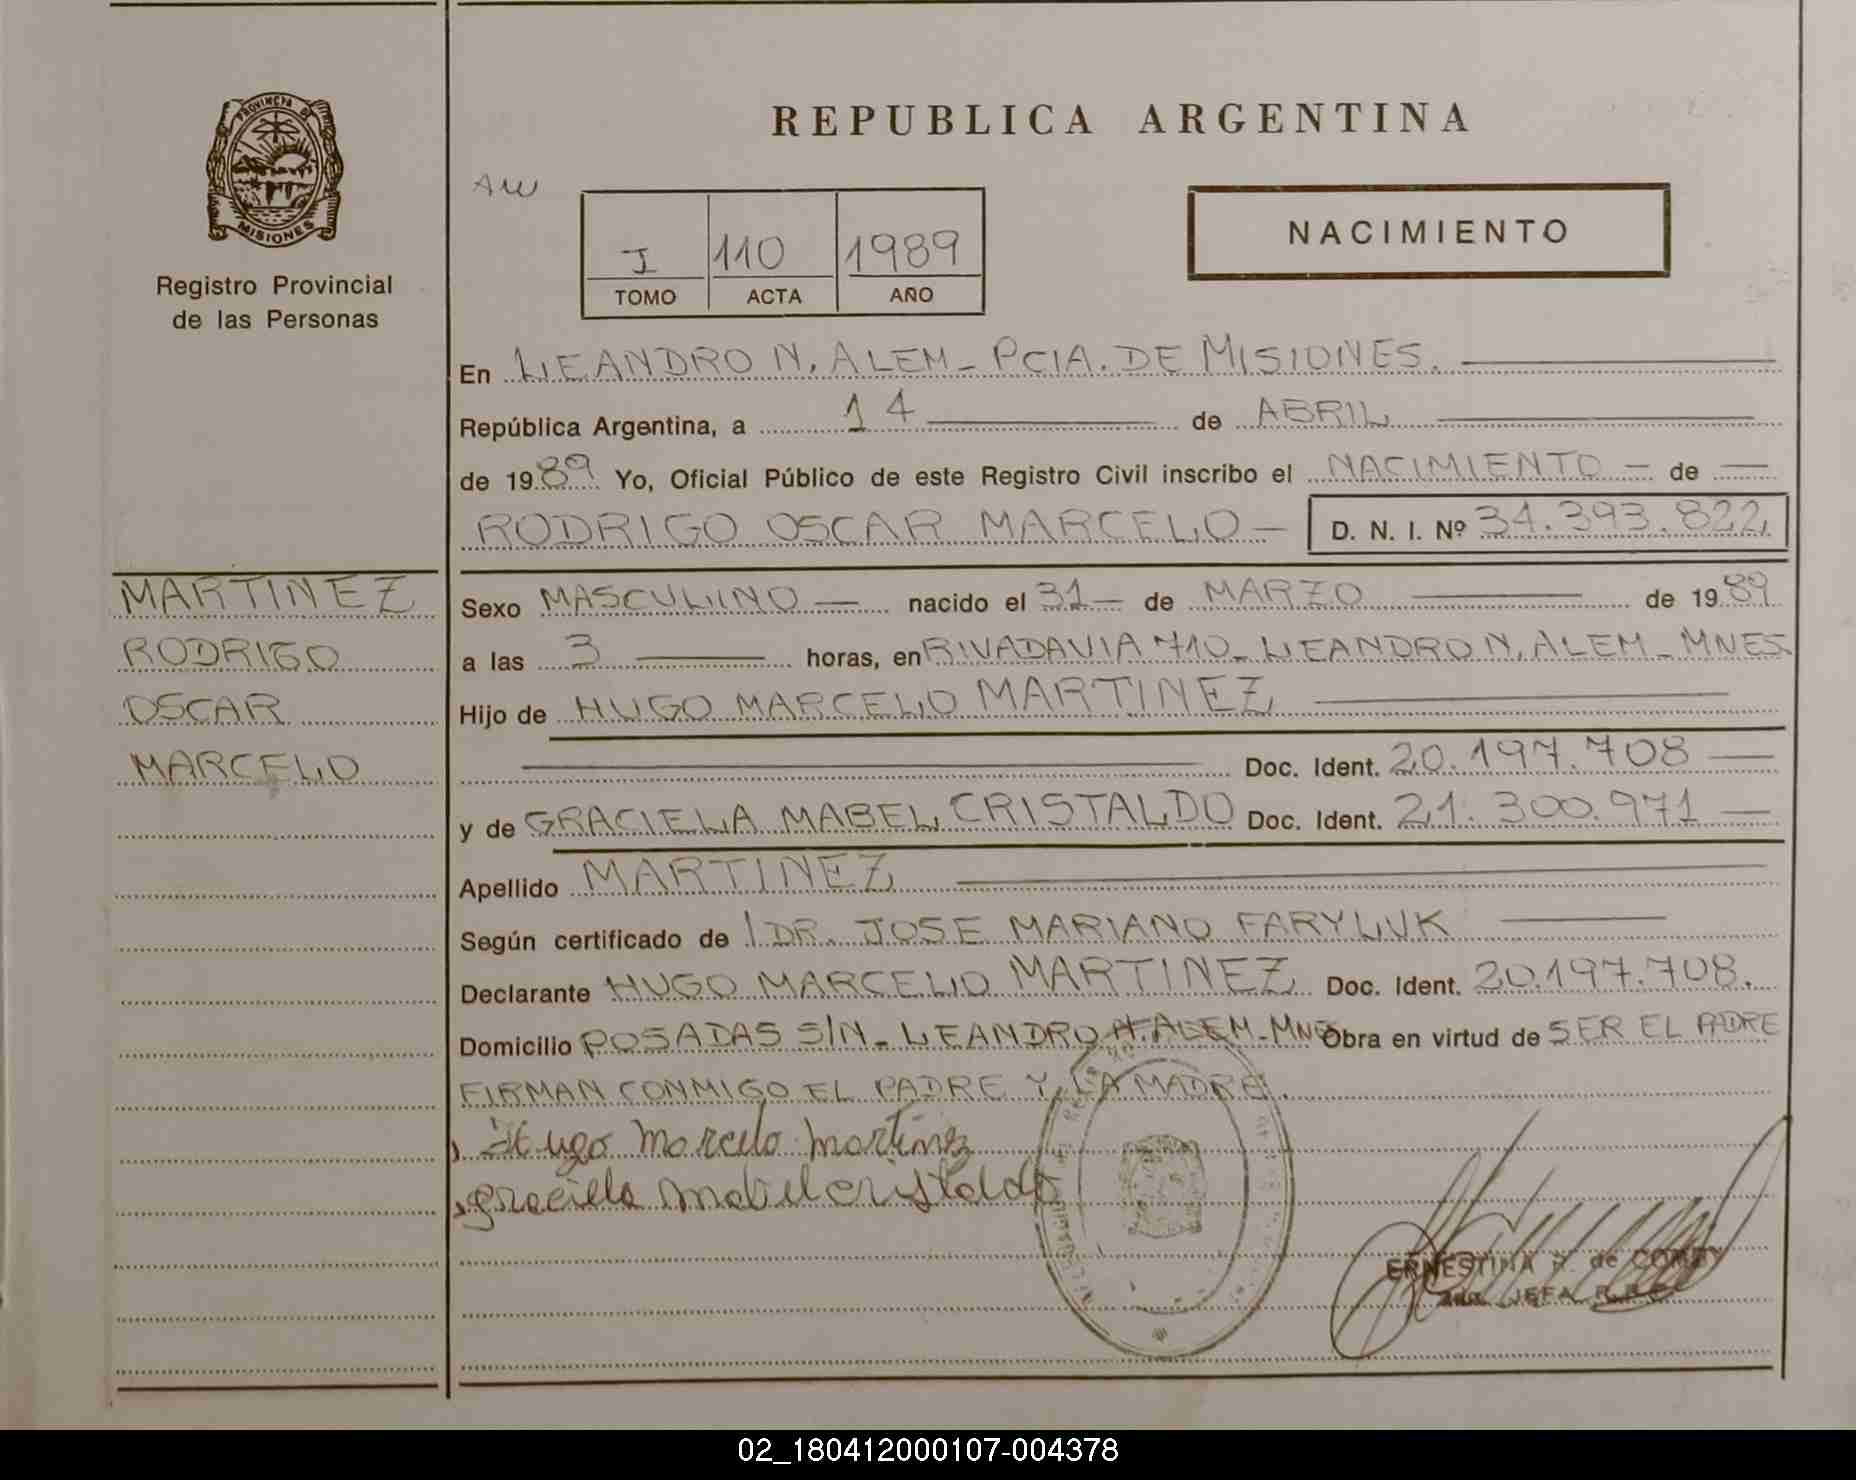 PROVINCIA DE
MISIONES
Registro Provincial
de las Personas
REPUBLICA ARGENTINA
I 110 1989
TOMO ACTA AÑO
NACIMIENTO
En LEANDRO N. ALEM - PCIA. DE MISIONES.
República Argentina, a 14 de ABRIL
de 1989 Yo, Oficial Público de este Registro Civil inscribo el NACIMIENTO - de
RODRIGO OSCAR MARCELO - D. N. I. Nº 34.393.822
MARTINEZ
RODRIGO
OSCAR
MARCELO
Sexo MASCULINO - nacido el 31 - de MARZO de 1989
a las 3 horas, en RIVADAVIA 710 - LEANDRO N. ALEM - MNES.
Hijo de HUGO MARCELO MARTINEZ
Doc. Ident. 20.197.708
y de GRACIELA MABEL CRISTALDO Doc. Ident. 21.300.971
Apellido MARTINEZ
Según certificado de DR. JOSE MARIANO FARYLUK
Declarante HUGO MARCELO MARTINEZ Doc. Ident. 20.197.708.
Domicilio POSADAS S/N - LEANDRO N. ALEM - MNES Obra en virtud de SER EL PADRE
FIRMAN CONMIGO EL PADRE Y LA MADRE.
Hugo Marcelo Martinez
Graciela Mabel Cristaldo
ERNESTINA de
JEFA
02_180412000107-004378